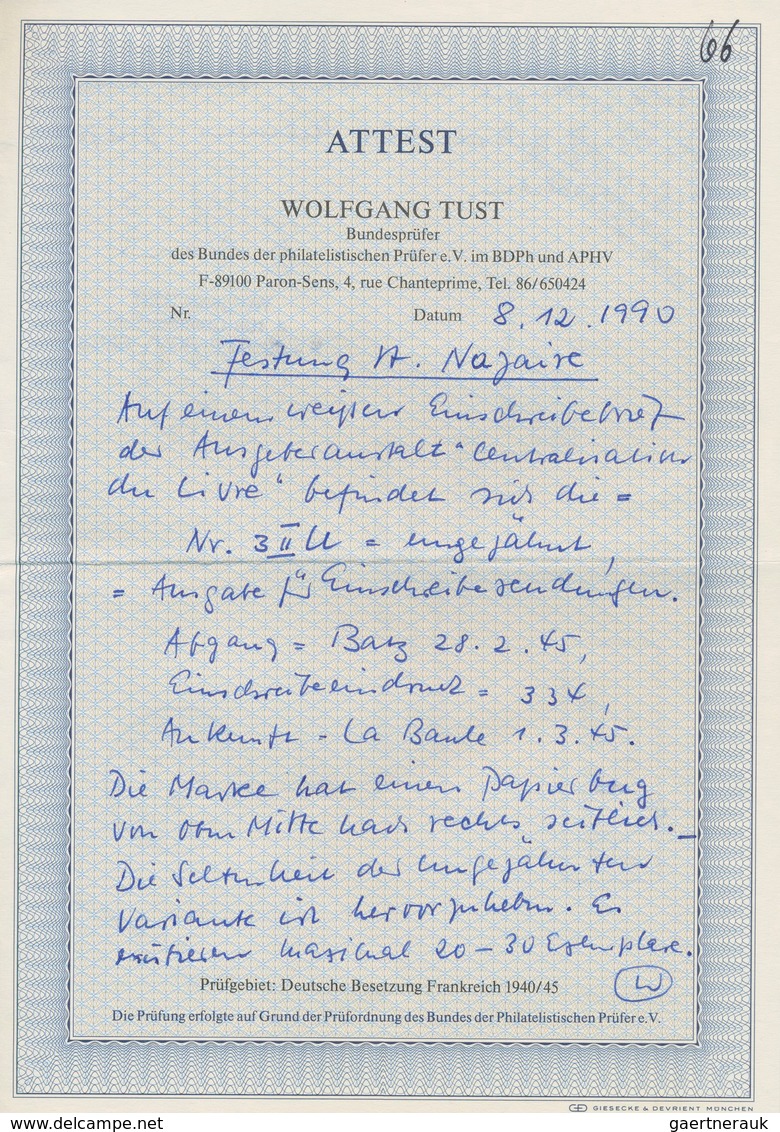 66
ATTEST
WOLFGANG TUST
Bundesprüfer
des Bundes der philatelistischen Prüfer e.V. im BDPh und APHV
F-89100 Paron-Sens, 4, rue Chanteprime, Tel. 86/650424
Nr. Datum 8.12.1990
Festung St. Nazaire
Auf einem weißen Einschreibebrief
der Ausgeberanstalt "Centralisation
du Livre" befindet sich die =
Nr. 3 II U = ungezähnt,
= Ausgabe für Einschreibesendungen.
Abgang = Batz 28.2.45,
Einschreibeeindruck = 334,
Ankunft - La Baule 1.3.45.
Die Marke hat einen Papierbug
von oben Mitte nach rechts seitlich. _
Die Seltenheit der ungezähnten
Variante ist hervorzuheben. Es
existieren maximal 20-30 Exemplare.
Prüfgebiet: Deutsche Besetzung Frankreich 1940/45
W
Die Prüfung erfolgte auf Grund der Prüfordnung des Bundes der Philatelistischen Prüfer e.V.
GIESECKE & DEVRIENT MÜNCHEN
www.stampcircuit.com
gaertnerauk